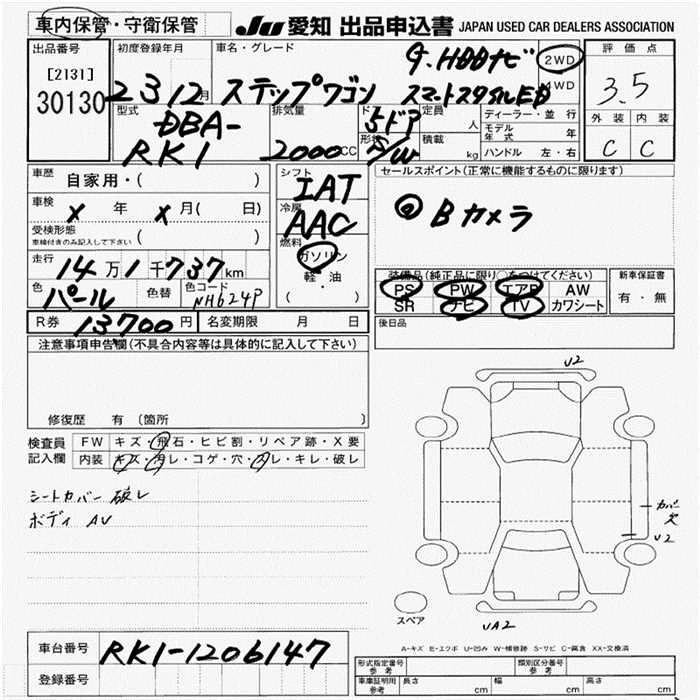 車内保管・守衛保管
JU 愛知 出品申込書 JAPAN USED CAR DEALERS ASSOCIATION
出品番号
[2131]
30130
初度登録年月
23 12月
車名・グレード
G. HDDナビ
ステップワゴン スマートスタイルED
2WD
4WD
評価点
3.5
外装 内装
C C
型式
DBA-
RK1
排気量
2000CC
ドア
5ドア
形状
S/W
定員 人
積載 kg
ディーラー・並行
モデル年式 年
ハンドル 左・右
車歴 自家用・( )
車検 X 年 X 月( 日)
受検形態
車検付きのみ記入して下さい ( )
走行 14万1千737km
色 パール 色替 色コード NH624P
R券 13700円 名変期限 月 日
シフト
IAT
冷房
AAC
燃料
ガソリン
軽・油
( ・ )
セールスポイント(正常に機能するものに限ります)
Bカメラ
装備品(純正品に限り○をつけてください)
PS PW エアB AW
SR ナビ TV カワシート
新車保証書
有・無
後日品
注意事項申告欄(不具合内容等は具体的に記入して下さい)
修復歴 有 (箇所 )
検査員記入欄
FW キズ・飛石・ヒビ割・リペア跡・X要
内装 キズ・汚レ・コゲ・穴・凹レ・キレ・破レ
シートカバー 破レ
ボディ AU
U2
カバー欠
U2
スペア
UA2
A-キズ E-エクボ U-凹み W-補修跡 S-サビ C-腐食 XX-交換済
車台番号 RK1-1206147
登録番号
形式指定番号 参考
類別区分番号 参考
車庫証明用 参考 長さ cm 幅 cm 高さ cm